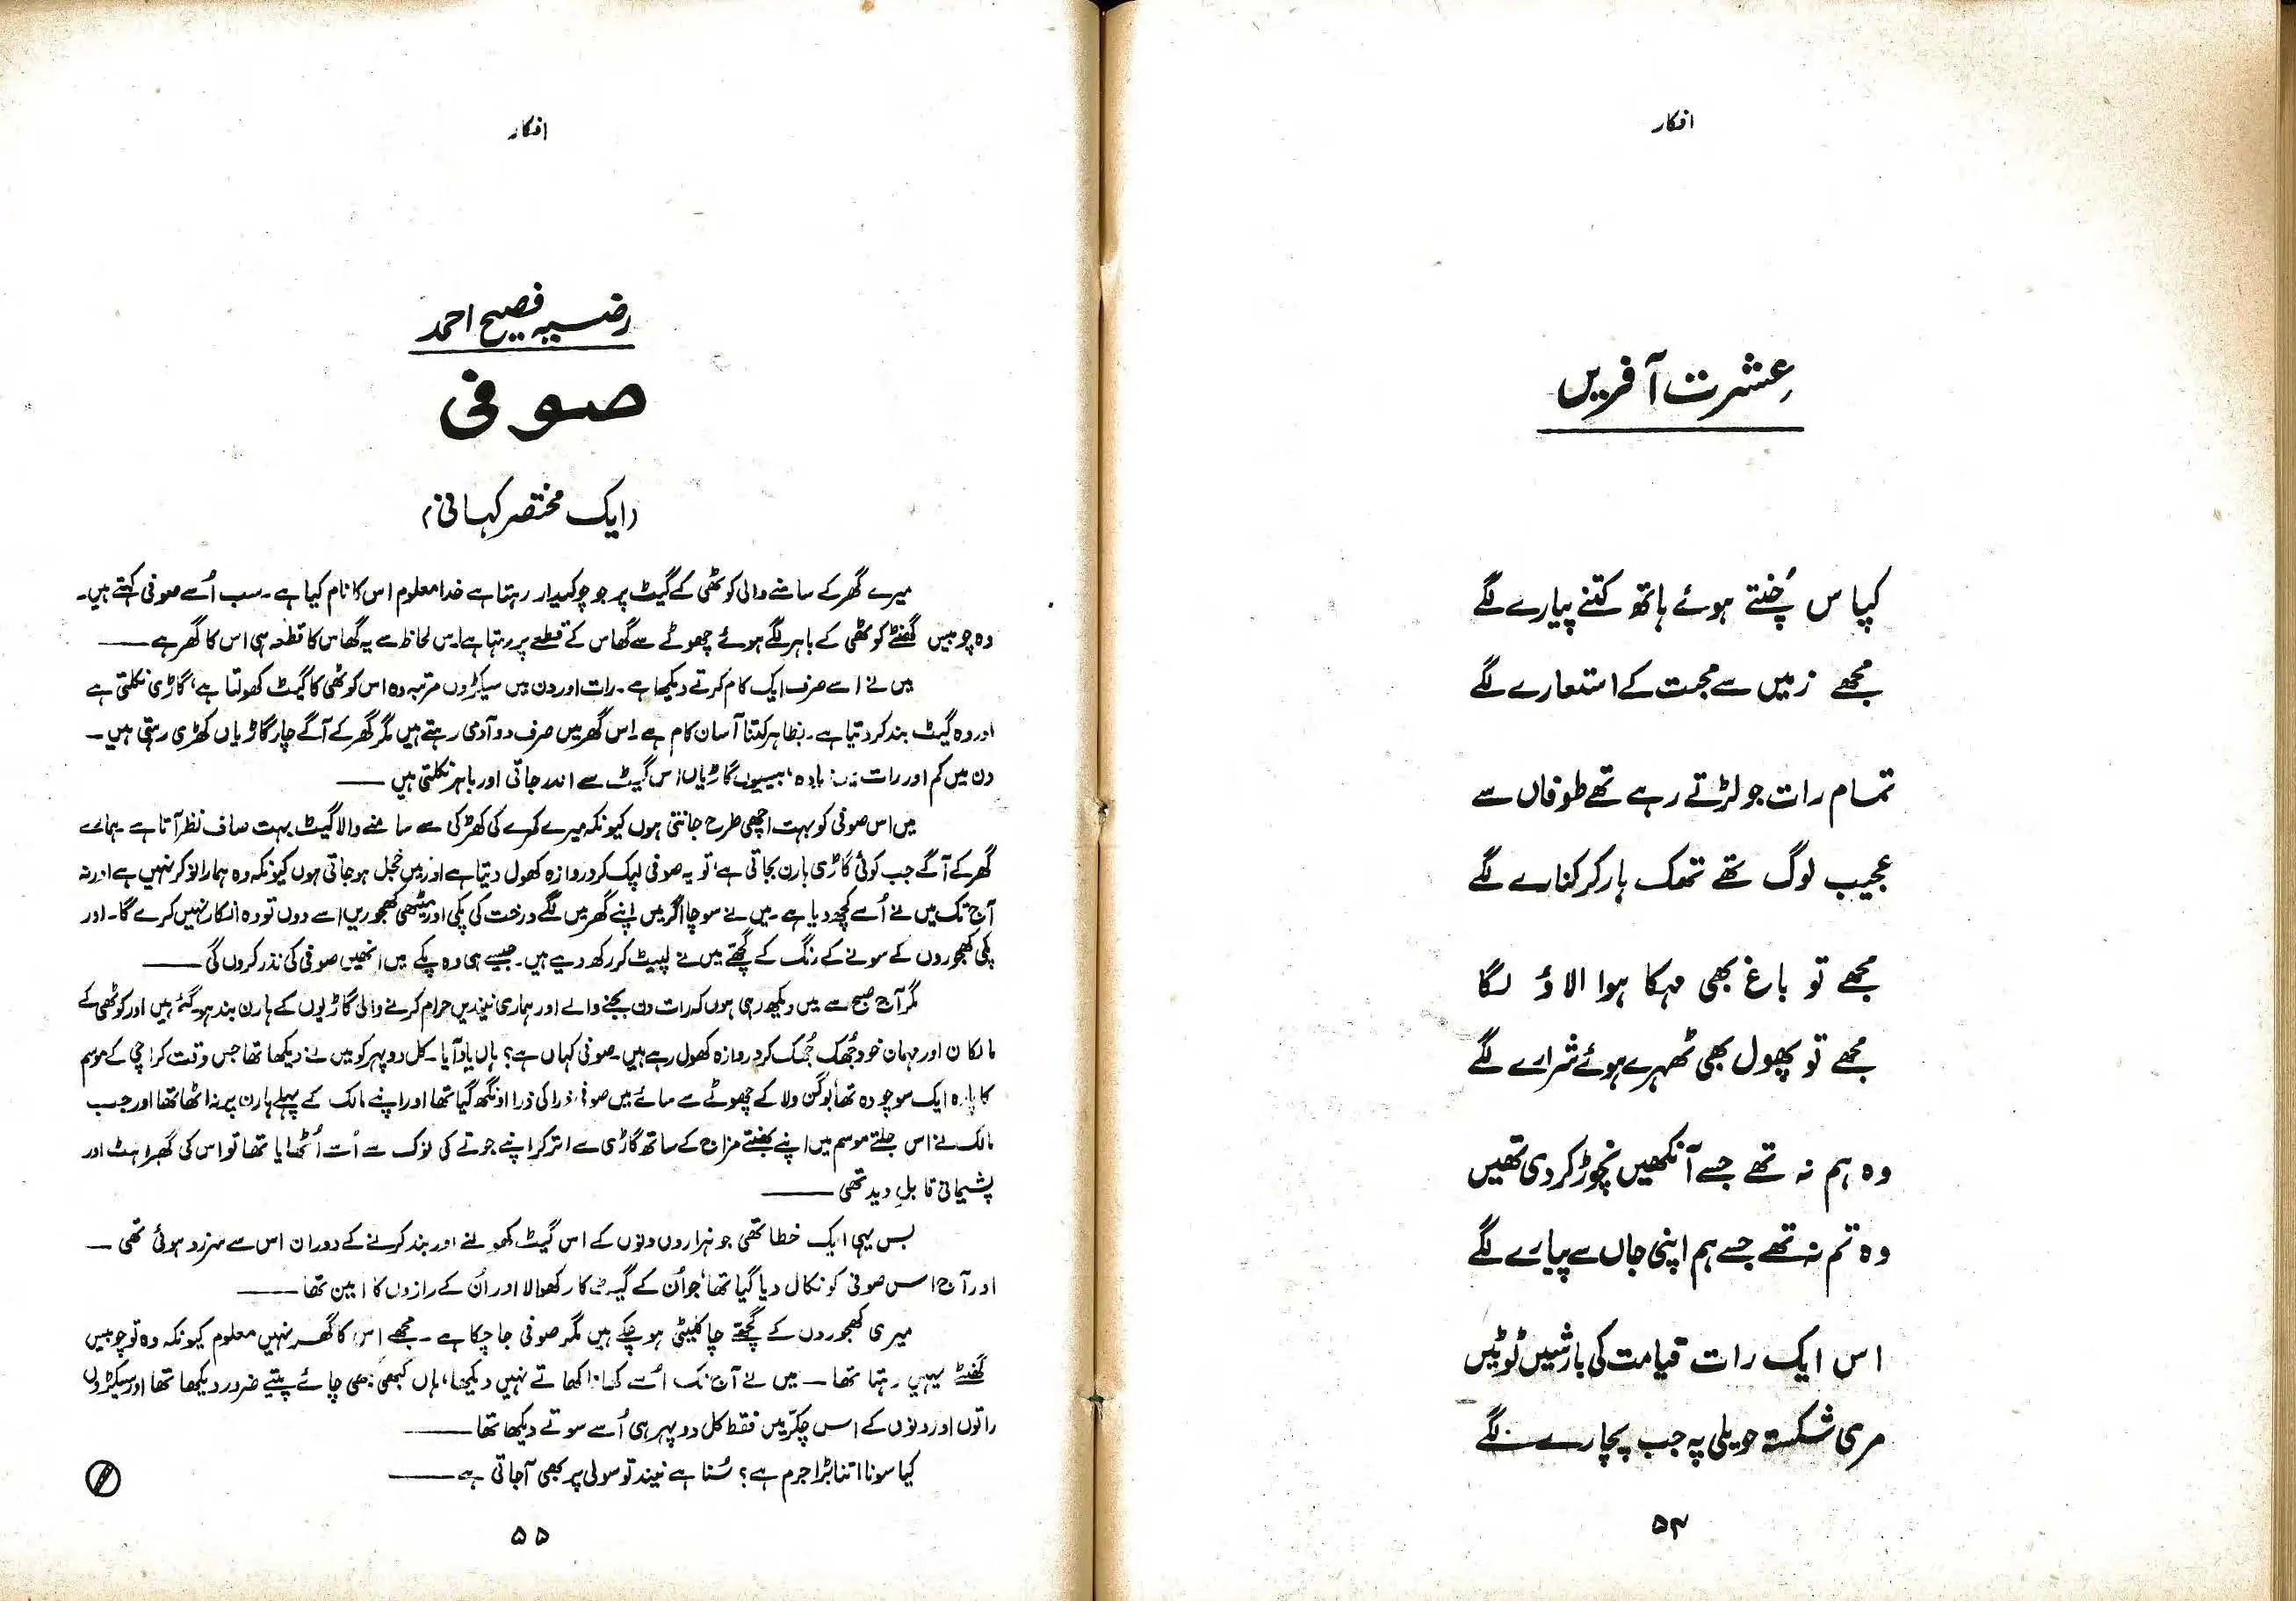 افکار
عشرت آفریں
کپاس چُنتے ہوئے ہاتھ کتنے پیارے لگے
مجھے زمیں سے محبت کے استعارے لگے
تمام رات جو لڑتے رہے تھے طوفاں سے
عجیب لوگ تھے تھک ہار کر کنارے لگے
مجھے تو باغ بھی مہکا ہوا الاؤ لگا
مجھے تو پھول بھی ٹھہرے ہوئے شرارے لگے
وہ ہم نہ تھے جسے آنکھیں نچوڑ کر دی تھیں
وہ تم نہ تھے جسے ہم اپنی جاں سے پیارے لگے
اس ایک رات قیامت کی بارشیں ٹوٹیں
مری شکستہ حویلی پہ جب پچارے لگے
۵۴
افکار
رضیہ فصیح احمد
صوفی
(ایک مختصر کہانی)
میرے گھر کے سامنے والی کوٹھی کے گیٹ پر جو چوکیدار رہتا ہے خدا معلوم اس کا نام کیا ہے۔ سب اُسے صوفی کہتے ہیں۔
وہ چوبیس گھنٹے کوٹھی کے باہر لگے ہوئے چھوٹے سے گھاس کے قطعے پر رہتا ہے۔ اس لحاظ سے یہ گھاس کا قطعہ ہی اس کا گھر ہے ——
میں نے اسے صرف ایک کام کرتے دیکھا ہے۔ رات اور دن میں سیکڑوں مرتبہ وہ اس کوٹھی کا گیٹ کھولتا ہے، گاڑی نکلتی ہے
اور وہ گیٹ بند کر دیتا ہے۔ بظاہر کتنا آسان کام ہے۔ اس گھر میں صرف دو آدمی رہتے ہیں مگر گھر کے آگے چار گاڑیاں کھڑی رہتی ہیں۔
دن میں کم اور رات میں زیادہ، بیسیوں گاڑیاں اس گیٹ سے اندر جاتی اور باہر نکلتی ہیں ——
میں اس صوفی کو بہت اچھی طرح جانتی ہوں کیونکہ میرے کمرے کی کھڑکی سے سامنے والا گیٹ بہت صاف نظر آتا ہے۔ ہمارے
گھر کے آگے جب کوئی گاڑی ہارن بجاتی ہے، تو یہ صوفی لپک کر دروازہ کھول دیتا ہے اور میں خجل ہو جاتی ہوں کیونکہ وہ ہمارا نوکر نہیں ہے اور نہ
آج تک میں نے اُسے کچھ دیا ہے۔ میں نے سوچا اگر میں اپنے گھر میں لگے درخت کی پکی اور میٹھی کھجوریں اسے دوں تو وہ انکار نہیں کرے گا۔ اور
پکی کھجوروں کے سونے کے رنگ کے گچھے میں نے لپیٹ کر رکھ دیے ہیں۔ جیسے ہی وہ پکے میں انھیں صوفی کی نذر کروں گی ——
مگر آج صبح سے میں دیکھ رہی ہوں کہ رات دن بجنے والے اور ہماری نیندیں حرام کرنے والی گاڑیوں کے ہارن بند ہو گئے ہیں اور کوٹھی کے
مالکان اور مہمان خود جُھک جُھک کر دروازہ کھول رہے ہیں۔ صوفی کہاں ہے؟ ہاں یاد آیا۔ کل دوپہر کو میں نے دیکھا تھا جس وقت کراچی کے موسم
کا پارہ ایک سو چودہ تھا بوگن ولا کے چھوٹے سے سائے میں صوفی ذرا کی ذرا اونگھ گیا تھا اور اپنے مالک کے پہلے ہارن پر نہ اٹھا تھا اور جب
مالک نے اس جلتے موسم میں اپنے بھنتے مزاج کے ساتھ گاڑی سے اتر کر اپنے جوتے کی نوک سے اُسے اُٹھایا تھا تو اس کی گھبراہٹ اور
پشیمانی قابلِ دید تھی ——
بس یہی ایک خطا تھی جو ہزاروں دنوں کے اس گیٹ کھولنے اور بند کرنے کے دوران اس سے سرزد ہوئی تھی —
اور آج اس صوفی کو نکال دیا گیا تھا، جو اُن کے گیٹ کا رکھوالا اور اُن کے رازوں کا امین تھا ——
میری کھجوروں کے گچھے چاکلیٹی ہو چکے ہیں مگر صوفی جا چکا ہے۔ مجھے اس کا گھر نہیں معلوم کیونکہ وہ تو چوبیس
گھنٹے یہیں رہتا تھا — میں نے آج تک اُسے کھانا کھاتے نہیں دیکھا، ہاں کبھی کبھی چائے پیتے ضرور دیکھا تھا اور سیکڑوں
راتوں اور دنوں کے اس چکّر میں فقط کل دوپہر ہی اُسے سوتے دیکھا تھا ——
کیا سونا اتنا بڑا جرم ہے؟ سُنا ہے نیند تو سولی پر بھی آ جاتی ہے ——
۵۵